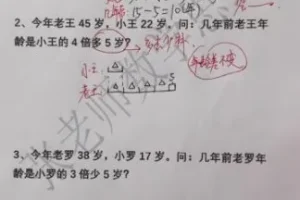 15-5=10(年)
2、今年老王 45 岁，小王 22 岁。问：几年前老王年
龄是小王的 4 倍多 5 岁？
小王
老王
5
年龄差不变
3、今年老罗 38 岁，小罗 17 岁。问：几年前老罗年
龄是小罗的 3 倍少 5 岁？
张老师数学